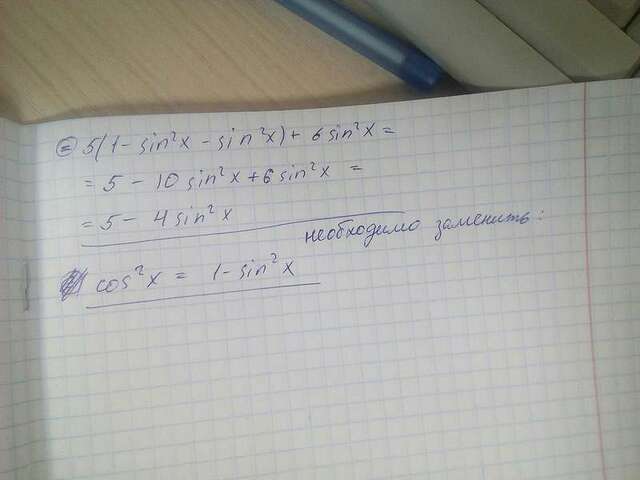 = 5(1 - sin²x - sin²x) + 6sin²x =
= 5 - 10 sin²x + 6 sin²x =
= 5 - 4 sin²x
необходимо заменить:
cos²x = 1 - sin²x